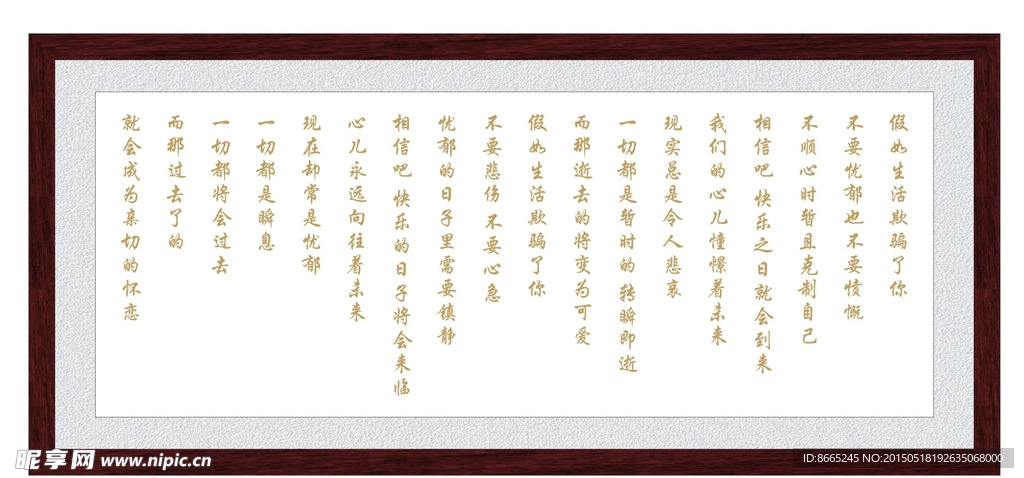 假如生活欺骗了你
不要忧郁也不要愤慨
不顺心时暂且克制自己
相信吧 快乐之日就会到来
我们的心儿憧憬着未来
现实总是令人悲哀
一切都是暂时的 转瞬即逝
而那逝去的将变为可爱
假如生活欺骗了你
不要悲伤 不要心急
忧郁的日子里需要镇静
相信吧 快乐的日子将会来临
心儿永远向往着未来
现在却常是忧郁
一切都是瞬息
一切都将会过去
而那过去了的
就会成为亲切的怀恋
昵享网 www.nipic.cn
ID:8665245 NO:20150518192635068000